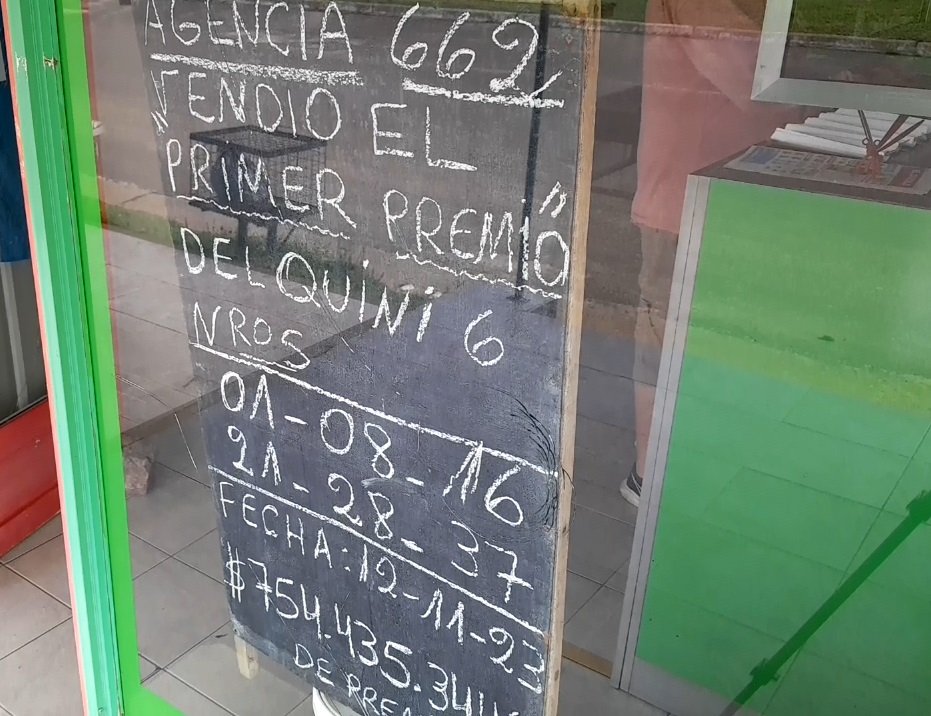 AGENCIA 662
VENDIO EL
"PRIMER PREMIO"
DEL QUINI 6
NROS
01-08-16
21-28-37
FECHA: 12-11-23
$754.435.344
DE